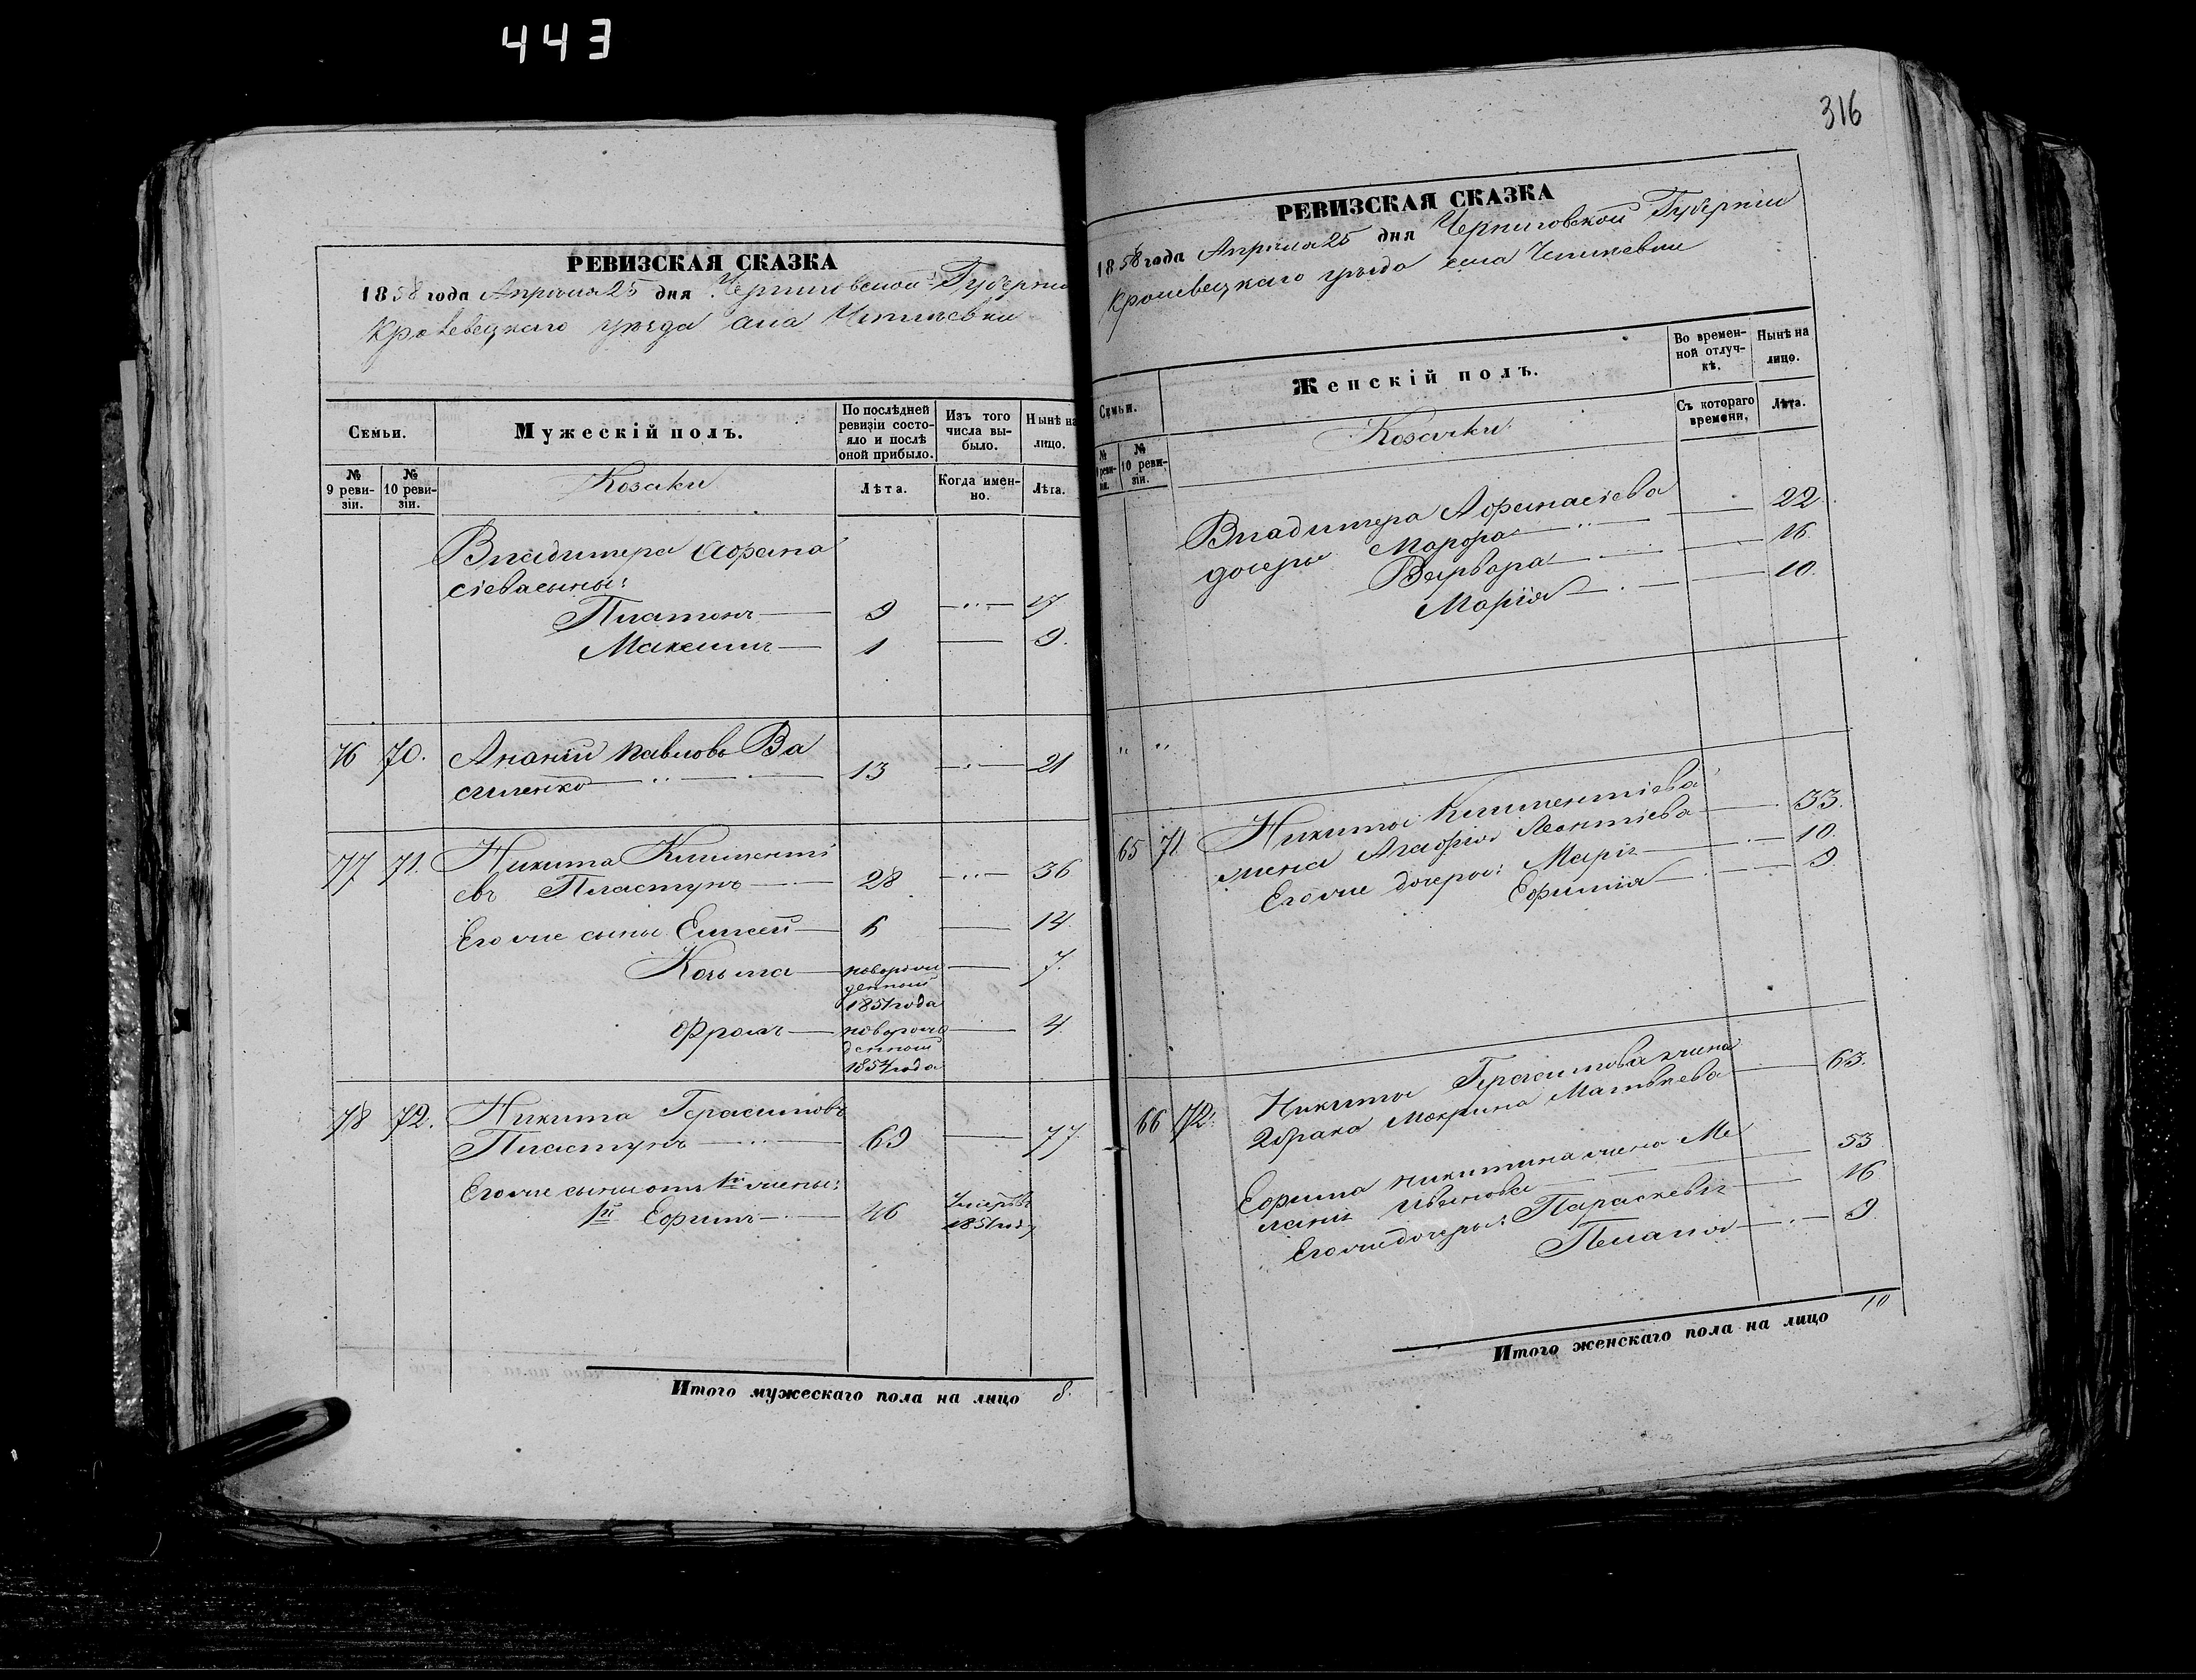 443
РЕВИЗСКАЯ СКАЗКА
1858 года Апреля 25 дня Черниговской Губерніи
Кролевецкаго уезда села
Семьи.
Мужескій полъ.
По послѣдней ревизіи состояло и послѣ оной прибыло.
Изъ того числа выбыло.
Нынѣ на лицо.
№ 9 ревизіи.
№ 10 ревизіи.
Козаки
Лѣта.
Когда именно.
Лѣта.
Владимера Афана
сіева сыны:
Платонъ 9 17
Максимъ 1 9.
76 70. Ананій Павловъ Ва
силенко 13 21
77 71. Никита Климентi
евъ Пластунъ 28 36
Его же сыны Елисей 6 14
Козьма новорож 7.
денный
1851 года
Фролъ новорож 4.
денный
1854 года
78 72. Никита Герасимовъ
Пластунъ 69 77
Его же сыны отъ 1й жены:
1й Ефимъ 46 Умеръ въ
1851 году
Итого мужескаго пола на лицо 8.
316
РЕВИЗСКАЯ СКАЗКА
1858 года Апреля 25 дня Черниговской Губерніи
Кролевецкаго уезда села
Семьи.
Женскій полъ.
Во временной отлучкѣ.
Нынѣ на лицо.
№ 9 ревизіи.
№ 10 ревизіи.
Козачки
Съ котораго времени.
Лѣта.
Владимера Афанасіева
дочери Марфа 22.
Варвара 16.
Марія 10.
" "
65 71 Никиты Климентіева
жена Агафія Леонтіева 33.
Его же дочеры: Марія 10.
Ефимія 9.
66 72. Никиты Герасимова жена
2 брака Макрина Матвеева 63.
Ефима Никитина жена Ме
ланія Иванова 53
Его же дочеры: Параскевія 16
Пелагія 9.
Итого женскаго пола на лицо 10